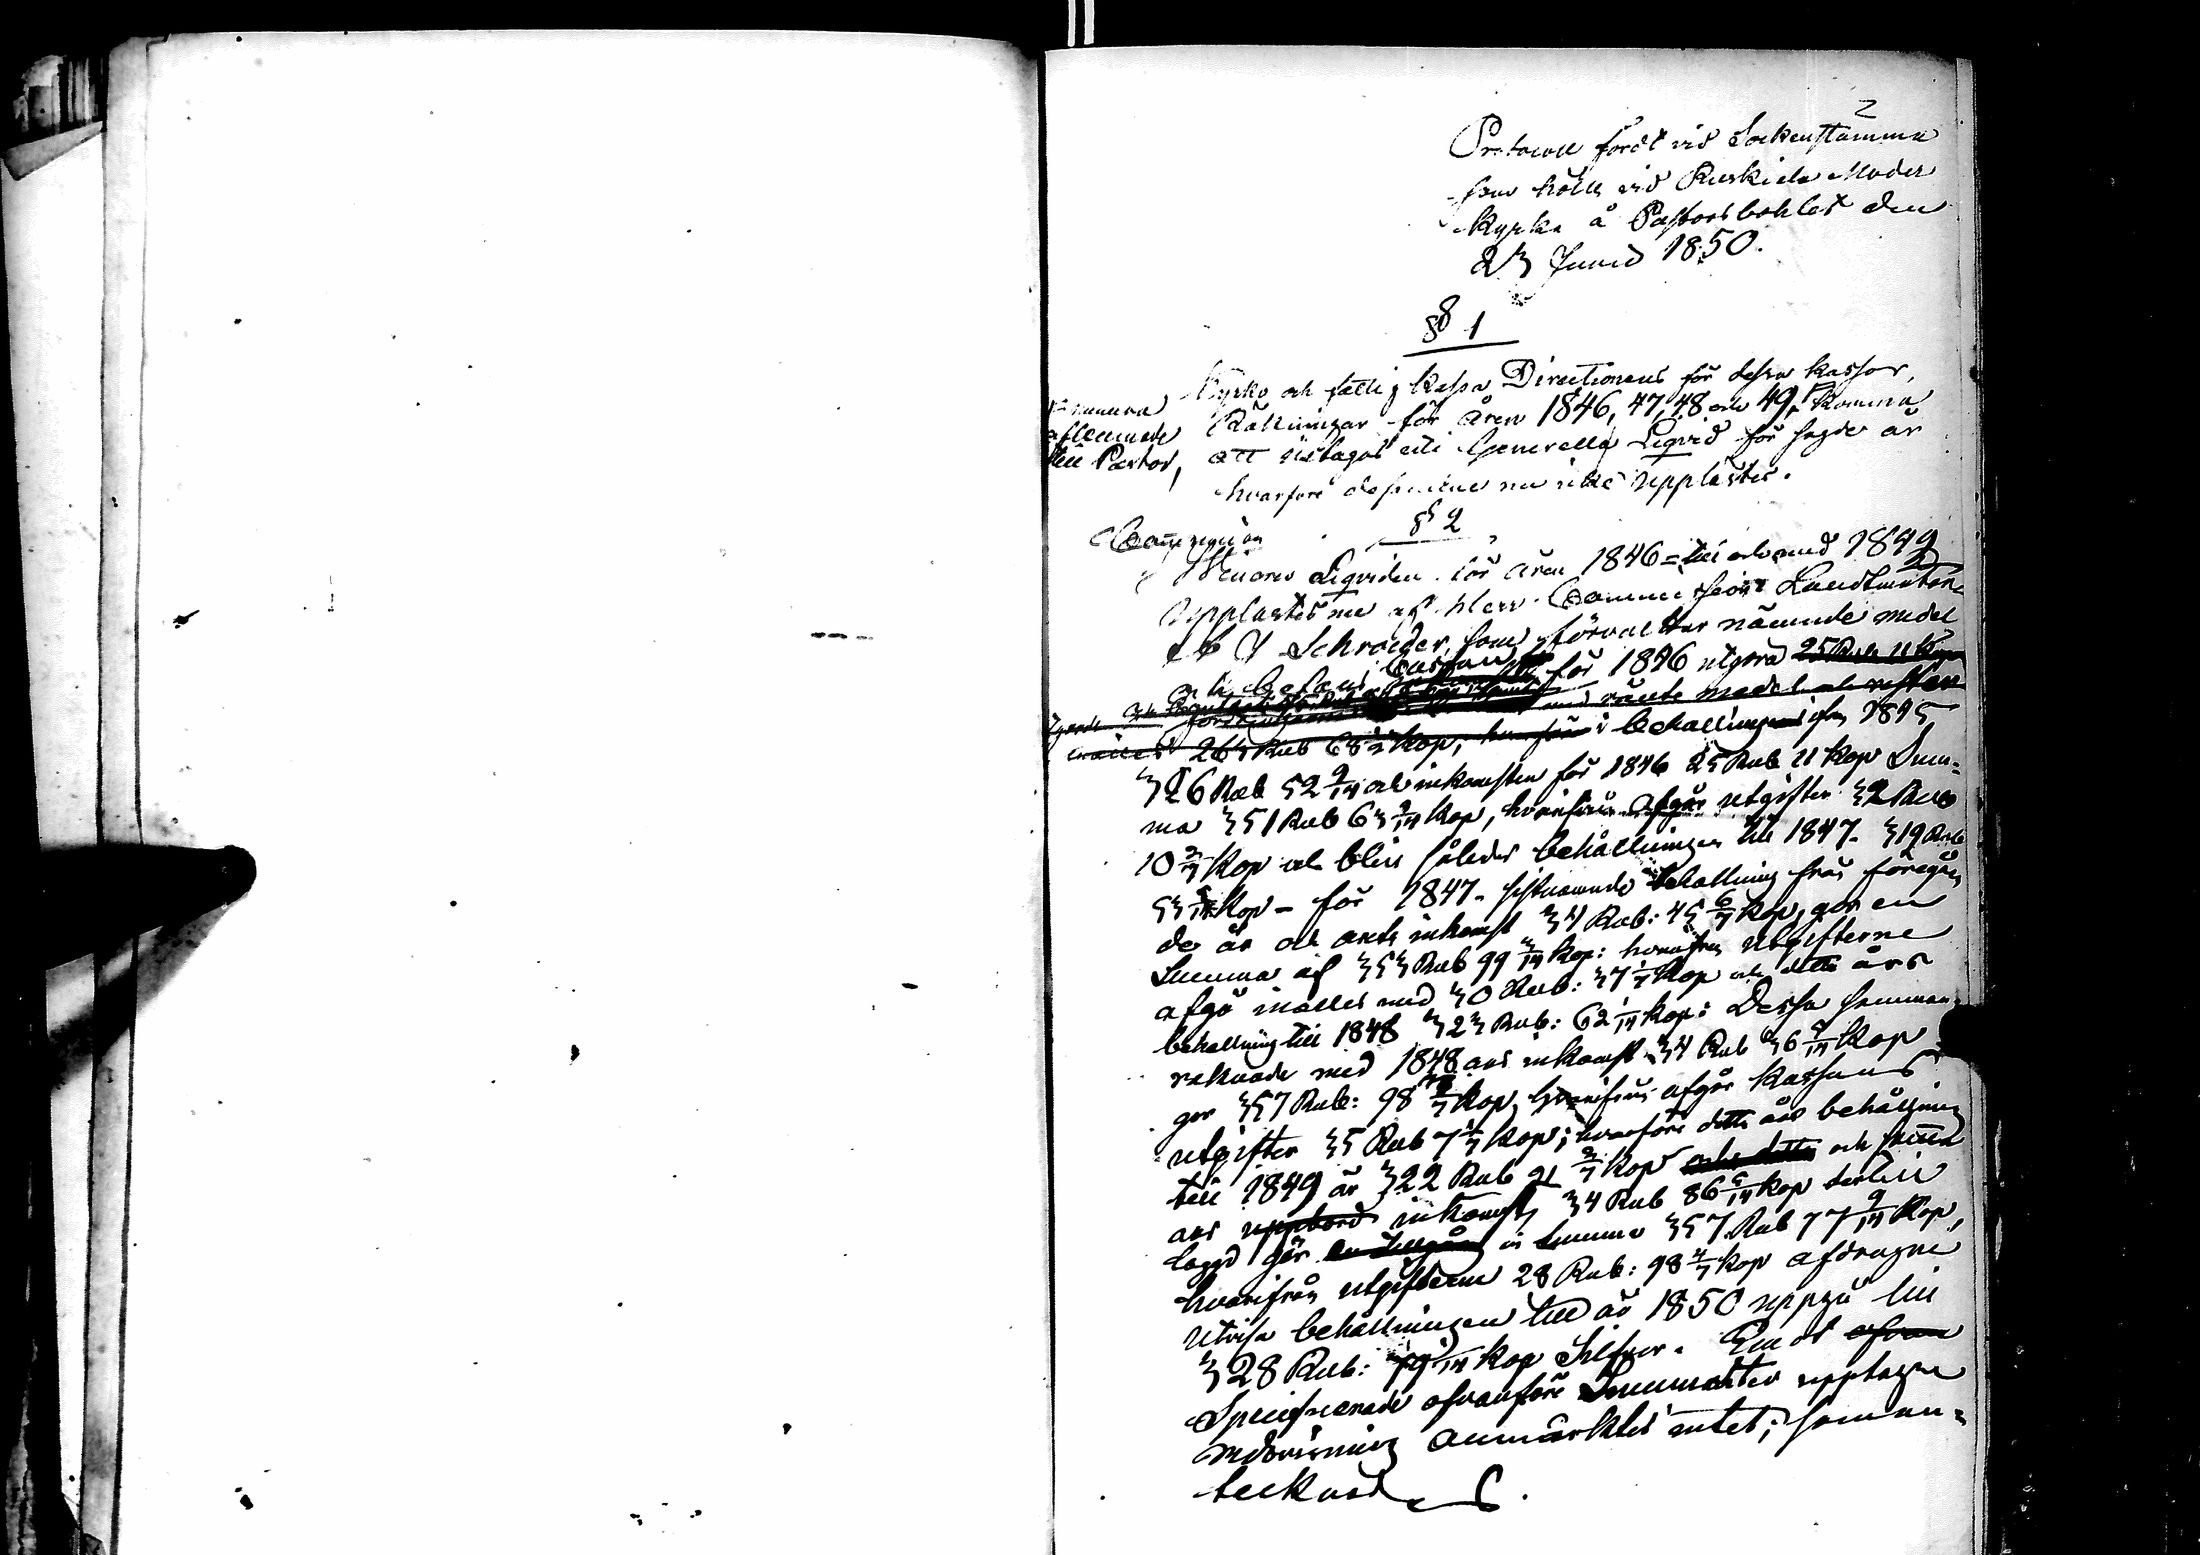 2
Protocoll fördt vid Sockenstämma
som hölls vid Ruskiala Moder
kyrka å Pastorsbohlet den
23 Junii 1850.
§ 1
Kyrko och fattig kassa Directionens för dessa kassor,
Räkningar för åren 1846, 47, 48 och 49, komma
aflemnade
till Pastor,
att uptagas uti Generella Liqvid för sagde år
hvarföre desamme nu icke upplästes.
§ 2
Liqviden för åren 1846 = till och med 1849
upplästes nu af Herr Commissions Landtmätaren
Schroeder, som förvaltar nämnde medel
och befans Cassan för 1846 utgöra 25 Rub 11 kop
26 Rub 68 kop, i behållning ifrån 1845
326 Rub 52 9/14 och inkomsten för 1846 25 Rub 11 kop Sum-
ma 351 Rub 63 9/14 kop, hvarifrån afgår utgifter 32 Rub
10 2/7 kop och blir således behållningen till 1847. 319 Rub
53 5/14 kop - för 1847. sistnämnde behållning från föregåen
de år och årets inkomst 34 Rub: 45 6/7 kop, gör en
Summa af 353 Rub 99 3/14 kop: hvarifrån utgifterne
afgå med 30 Rub: 37 1/7 kop och detta års
behållning till 1848 323 Rub: 62 1/14 kop: Dessa samman
räknade med 1848 års inkomst 34 Rub 36 7/14 kop
gör 357 Rub: 98 4/7 kop, hvarifrån afgår kassans
utgifter 35 Rub 7 1/7 kop; hvarföre detta års behållning
till 1849 är 322 Rub 91 3/7 kop och detta och samma
års uppbörd inkomst 34 Rub 86 5/14 kop dertill
lagd gör en Summa 357 Rub 77 9/14 kop,
hvarifrån utgifterne 28 Rub: 98 4/7 kop afdragne
utvisa behållningen till år 1850 uppgå till
328 Rub: 79 1/14 kop Silfver. Emot ofvan
Specificerade ofvanföre Summariter upptagne
redovisning anmärktes intet; som an-
tecknas